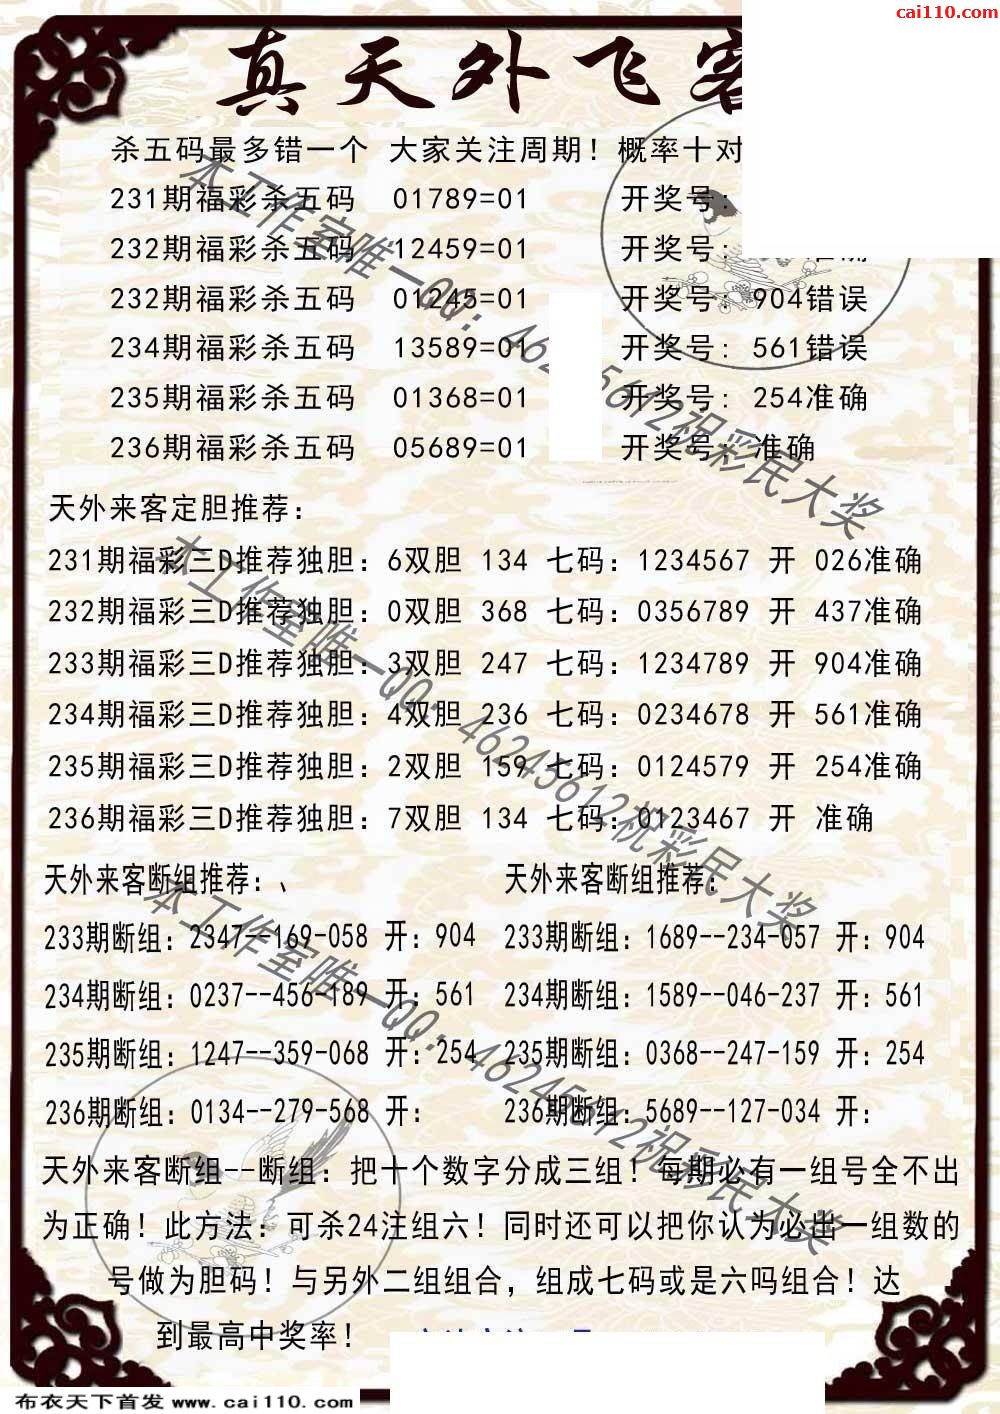 cai110.com
真天外飞客
杀五码最多错一个 大家关注周期！概率十对
231期福彩杀五码 01789=01 开奖号:
232期福彩杀五码 12459=01 开奖号: 准确
232期福彩杀五码 01245=01 开奖号: 904错误
234期福彩杀五码 13589=01 开奖号: 561错误
235期福彩杀五码 01368=01 开奖号: 254准确
236期福彩杀五码 05689=01 开奖号: 准确
天外来客定胆推荐:
231期福彩三D推荐独胆: 6双胆 134 七码: 1234567 开 026准确
232期福彩三D推荐独胆: 0双胆 368 七码: 0356789 开 437准确
233期福彩三D推荐独胆: 3双胆 247 七码: 1234789 开 904准确
234期福彩三D推荐独胆: 4双胆 236 七码: 0234678 开 561准确
235期福彩三D推荐独胆: 2双胆 159 七码: 0124579 开 254准确
236期福彩三D推荐独胆: 7双胆 134 七码: 0123467 开 准确
天外来客断组推荐:、 天外来客断组推荐:
233期断组: 2347--169-058 开: 904 233期断组: 1689--234-057 开: 904
234期断组: 0237--456-189 开: 561 234期断组: 1589--046-237 开: 561
235期断组: 1247--359-068 开: 254 235期断组: 0368--247-159 开: 254
236期断组: 0134--279-568 开: 236期断组: 5689--127-034 开:
天外来客断组--断组: 把十个数字分成三组! 每期必有一组号全不出
为正确! 此方法: 可杀24注组六! 同时还可以把你认为必出一组数的
号做为胆码! 与另外二组组合, 组成七码或是六吗组合! 达
到最高中奖率!
本工作室唯一QQ: 46245612祝彩民大奖
本工作室唯一QQ: 46245612祝彩民大奖
本工作室唯一QQ: 46245612祝彩民大奖
布衣天下首发 www.cai110.com